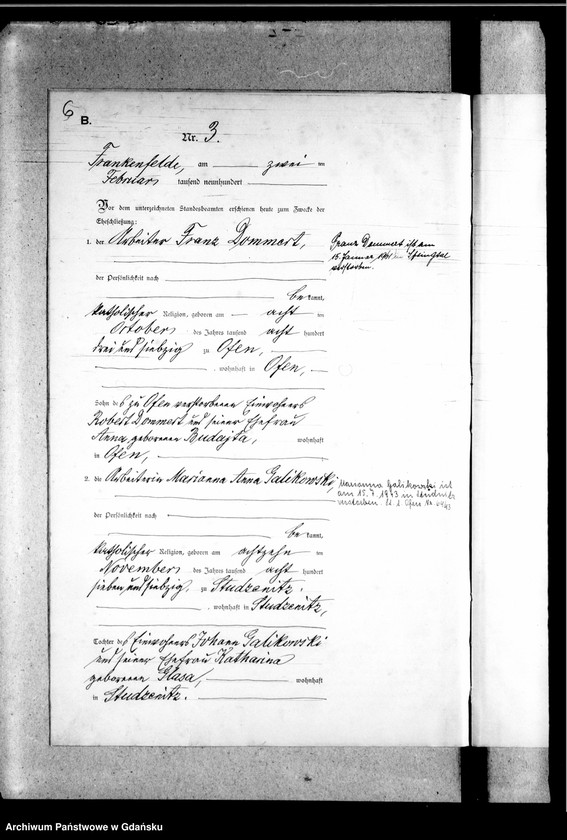 6
B.
Nr. 3.
Frankenfelde, am zwei im
Februar tausend neunhundert
Vor dem unterzeichneten Standesbeamten erschienen heute zum Zwecke der
Eheschließung:
1. der Arbeiter Franz Dommert,
der Persönlichkeit nach
bekannt,
katholischer Religion, geboren am acht im
October des Jahres tausend acht hundert
drei und siebzig zu Ofen,
, wohnhaft in Ofen,
Sohn des zu Ofen verstorbenen Einwohners
Robert Dommert und seiner Ehefrau
Anna geborenen Budajta, wohnhaft
in Ofen,
Franz Dommert ist am
15. Januar
verstorben.
2. die Arbeiterin Marianna Anna Galikowski,
Marianna Galikowski ist
am 15. 7. 1943 in
verstorben St. A. Ofen Nr.
der Persönlichkeit nach
bekannt,
katholischer Religion, geboren am achtzehn im
November des Jahres tausend acht hundert
sieben und siebzig, zu Studzenitz.
, wohnhaft in Studzenitz,
Tochter des Einwohners Johann Galikowski
und seiner Ehefrau Katharina
geborenen Stasa, wohnhaft
in Studzenitz.
Archiwum Państwowe w Gdańsku